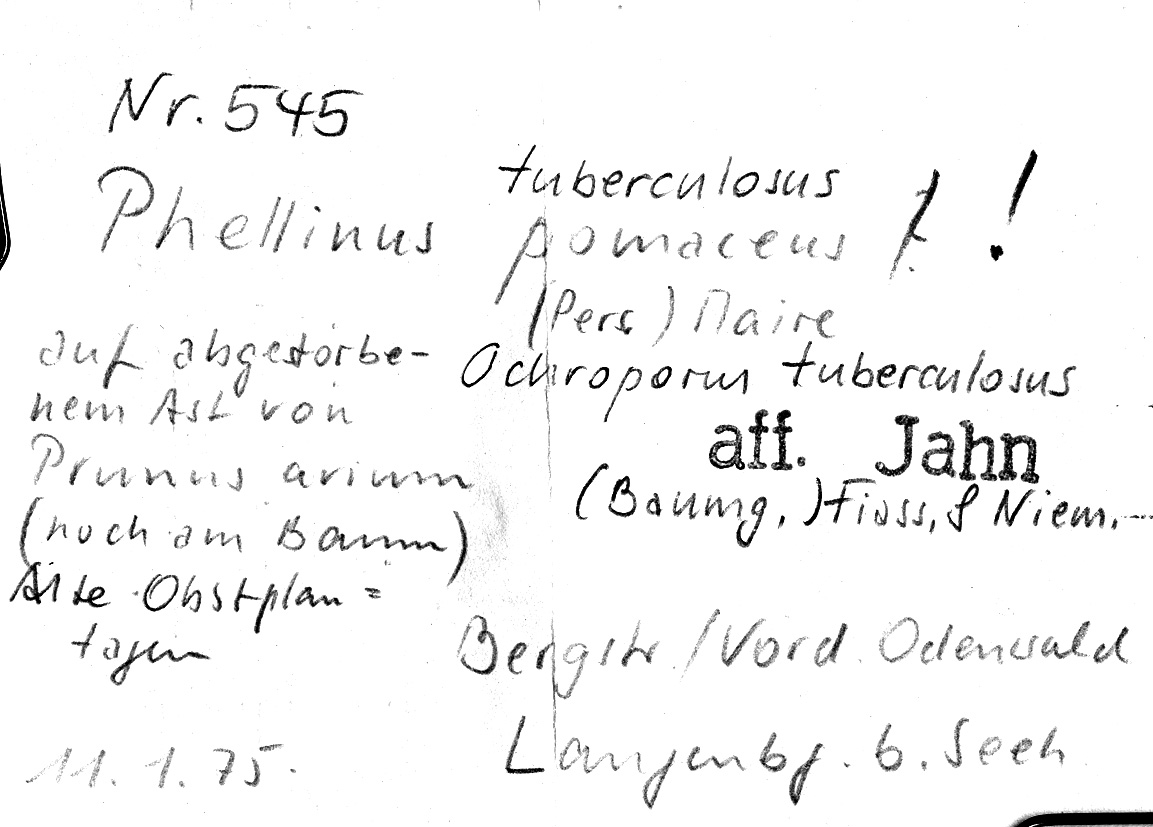 Nr. 545
tuberculosus
Phellinus pomaceus !
(Pers) Maire
Ochroporus tuberculosus
aff. Jahn
(Baumg.) Fiass. & Niem.
auf abgestorbe-
nem Ast von
Prunus avium
(noch am Baum)
Alte Obstplan=
tagen
Bergstr / Vord. Odenwald
Langenbg. b. Seeh
11. 1. 75.